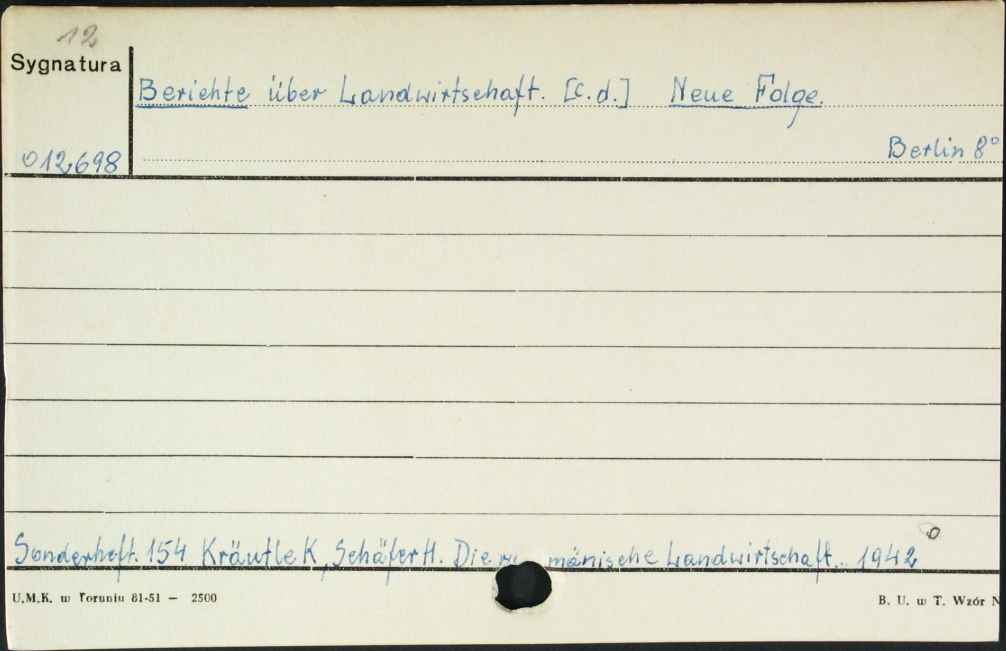 12
Sygnatura
Berichte über Landwirtschaft. [c.d.] Neue Folge.
012698
Berlin 8°
Sonderheft. 154 Kräutle K, Schäfer H. Die ru mänische Landwirtschaft. 1942
U.M.K. w Toruniu 81-51 — 2500
B. U. w T. Wzór N